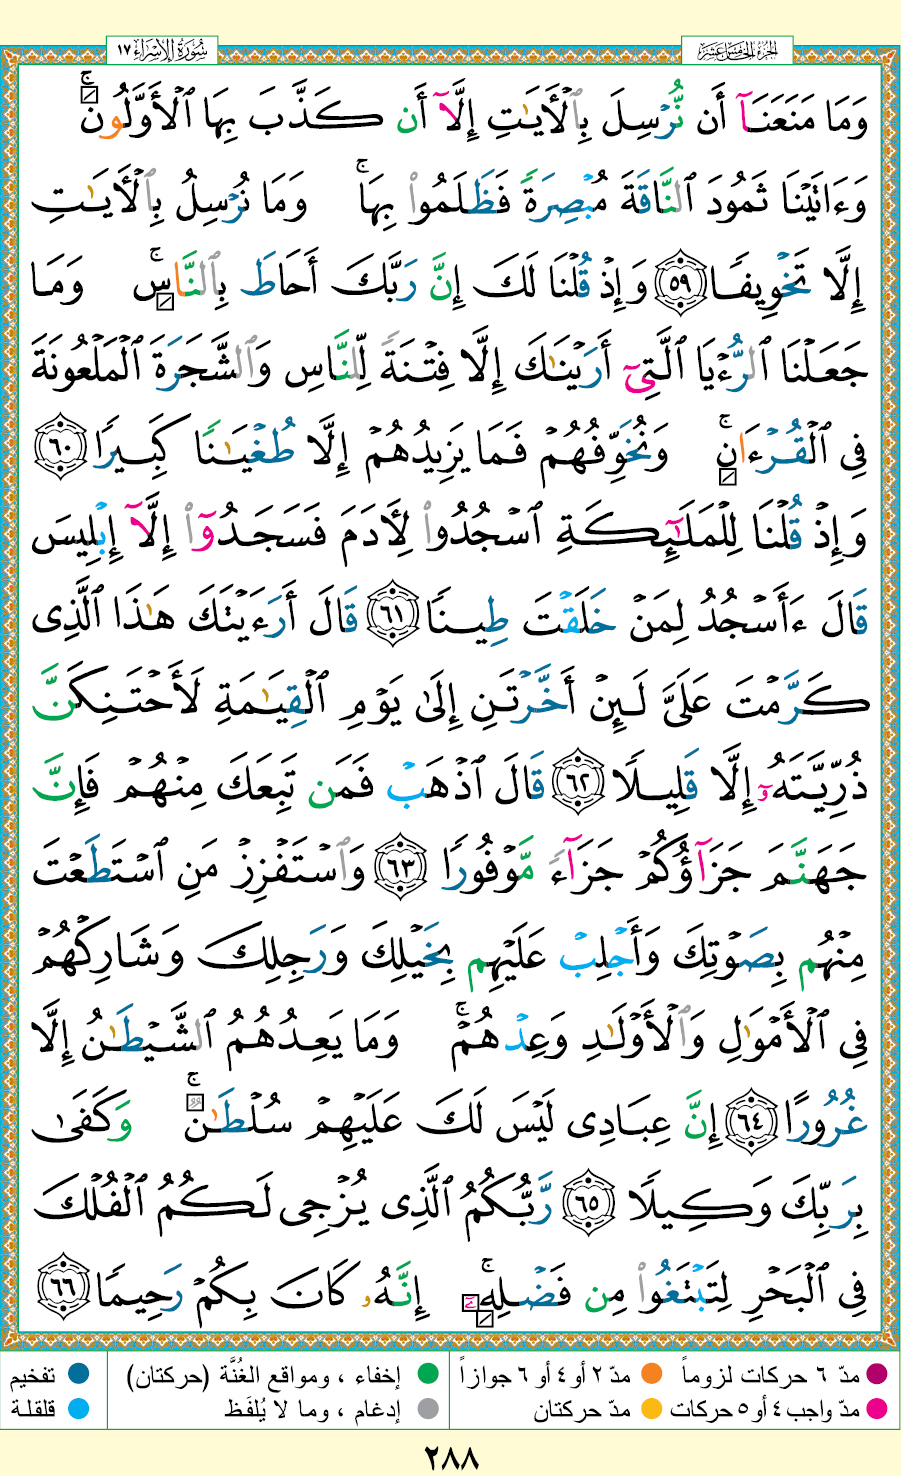 سُورَةُ الإِسۡرَاء ١٧
الجُزءُ الخَامِسَ عَشَرَ
وَمَا مَنَعَنَآ أَن نُّرۡسِلَ بِٱلۡأٓيَٰتِ إِلَّآ أَن كَذَّبَ بِهَا ٱلۡأَوَّلُونَۚ
وَءَاتَيۡنَا ثَمُودَ ٱلنَّاقَةَ مُبۡصِرَةٗ فَظَلَمُواْ بِهَاۚ وَمَا نُرۡسِلُ بِٱلۡأٓيَٰتِ
إِلَّا تَخۡوِيفٗا ٥٩ وَإِذۡ قُلۡنَا لَكَ إِنَّ رَبَّكَ أَحَاطَ بِٱلنَّاسِۚ وَمَا
جَعَلۡنَا ٱلرُّءۡيَا ٱلَّتِيٓ أَرَيۡنَٰكَ إِلَّا فِتۡنَةٗ لِّلنَّاسِ وَٱلشَّجَرَةَ ٱلۡمَلۡعُونَةَ
فِي ٱلۡقُرۡءَانِۚ وَنُخَوِّفُهُمۡ فَمَا يَزِيدُهُمۡ إِلَّا طُغۡيَٰنٗا كَبِيرٗا ٦٠
وَإِذۡ قُلۡنَا لِلۡمَلَٰٓئِكَةِ ٱسۡجُدُواْ لِأٓدَمَ فَسَجَدُوٓاْ إِلَّآ إِبۡلِيسَ
قَالَ ءَأَسۡجُدُ لِمَنۡ خَلَقۡتَ طِينٗا ٦١ قَالَ أَرَءَيۡتَكَ هَٰذَا ٱلَّذِي
كَرَّمۡتَ عَلَيَّ لَئِنۡ أَخَّرۡتَنِ إِلَىٰ يَوۡمِ ٱلۡقِيَٰمَةِ لَأَحۡتَنِكَنَّ
ذُرِّيَّتَهُۥٓ إِلَّا قَلِيلٗا ٦٢ قَالَ ٱذۡهَبۡ فَمَن تَبِعَكَ مِنۡهُمۡ فَإِنَّ
جَهَنَّمَ جَزَآؤُكُمۡ جَزَآءٗ مَّوۡفُورٗا ٦٣ وَٱسۡتَفۡزِزۡ مَنِ ٱسۡتَطَعۡتَ
مِنۡهُم بِصَوۡتِكَ وَأَجۡلِبۡ عَلَيۡهِم بِخَيۡلِكَ وَرَجِلِكَ وَشَارِكۡهُمۡ
فِي ٱلۡأَمۡوَٰلِ وَٱلۡأَوۡلَٰدِ وَعِدۡهُمۡۚ وَمَا يَعِدُهُمُ ٱلشَّيۡطَٰنُ إِلَّا
غُرُورًا ٦٤ إِنَّ عِبَادِي لَيۡسَ لَكَ عَلَيۡهِمۡ سُلۡطَٰنٞۚ وَكَفَىٰ
بِرَبِّكَ وَكِيلٗا ٦٥ رَّبُّكُمُ ٱلَّذِي يُزۡجِي لَكُمُ ٱلۡفُلۡكَ
فِي ٱلۡبَحۡرِ لِتَبۡتَغُواْ مِن فَضۡلِهِۦٓۚ إِنَّهُۥ كَانَ بِكُمۡ رَحِيمٗا ٦٦
مدّ ٦ حركات لزوماً
مدّ ٢ أو ٤ أو ٦ جوازاً
إخفاء ، ومواقع الغُنَّة (حركتان)
تفخيم
مدّ واجب ٤ أو ٥ حركات
مدّ حركتان
إدغام ، وما لا يُلفَظ
قلقلة
٢٨٨